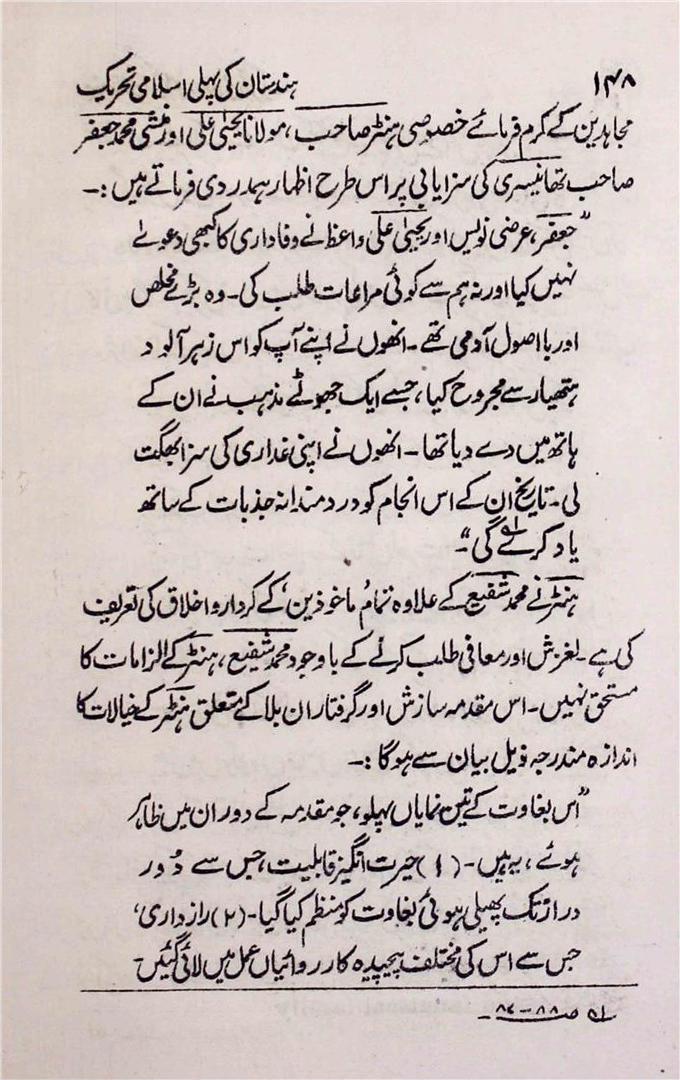 ۱۴۸ ہندستان کی پہلی اسلامی تحریک
مجاہدین کے کرم فرمائے خصوصی ہنٹر صاحب، مولانا یحییٰ علی اور منشی محمد جعفر
صاحب تھانیسری کی سزایابی پر اس طرح اظہار ہمدردی فرماتے ہیں :۔
”جعفر، عرضی نویس اور یحییٰ علی واعظ نے وفاداری کا کبھی دعوےٰ
نہیں کیا اور نہ ہم سے کوئی مراعات طلب کی۔ وہ بڑے مخلص
اور بااصول آدمی تھے۔ انھوں نے اپنے آپ کو اس زہر آلود
ہتھیار سے مجروح کیا، جسے ایک جھوٹے مذہب نے ان کے
ہاتھ میں دے دیا تھا۔ انھوں نے اپنی غداری کی سزا بھگت
لی۔ تاریخ ان کے اس انجام کو دردمندانہ جذبات کے ساتھ
یاد کرے گی“۔ ؎۱
ہنٹر نے محمد شفیع کے علاوہ تمام ’ماخوذین‘ کے کردار و اخلاق کی تعریف
کی ہے۔ لغزش اور معافی طلب کرنے کے باوجود محمد شفیع، ہنٹر کے الزامات کا
مستحق نہیں۔ اس مقدمہ سازش اور گرفتاران بلا کے متعلق ہنٹر کے خیالات کا
اندازہ مندرجہ ذیل بیان سے ہوگا :۔
”اس بغاوت کے تین نمایاں پہلو، جو مقدمہ کے دوران میں ظاہر
ہوئے، یہ ہیں۔ (۱) حیرت انگیز قابلیت، جس سے دُور
دراز تک پھیلی ہوئی بغاوت کو منظم کیا گیا۔ (۲) رازداری،
جس سے اس کی مختلف پیچیدہ کارروائیاں عمل میں لائی گئیں۔
؎۱ صـ ۸۸ – ۸۷ ۔